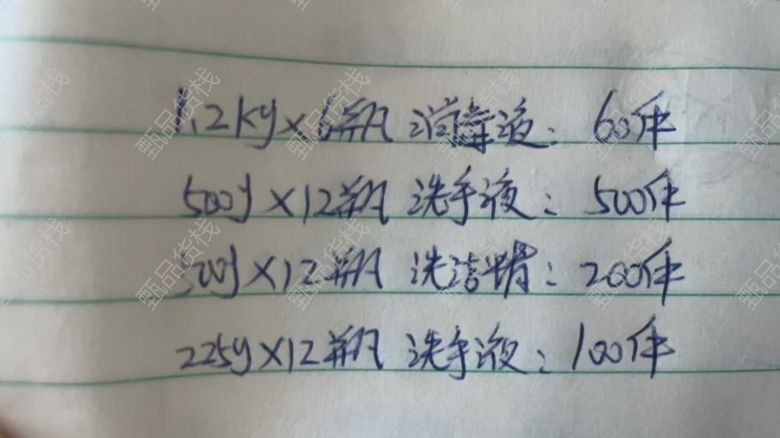 1.2kg×6瓶 消毒液：60件
500g×12瓶 洗手液：500件
500g×12瓶 洗洁精：200件
225g×12瓶 洗手液：100件
甄品货栈